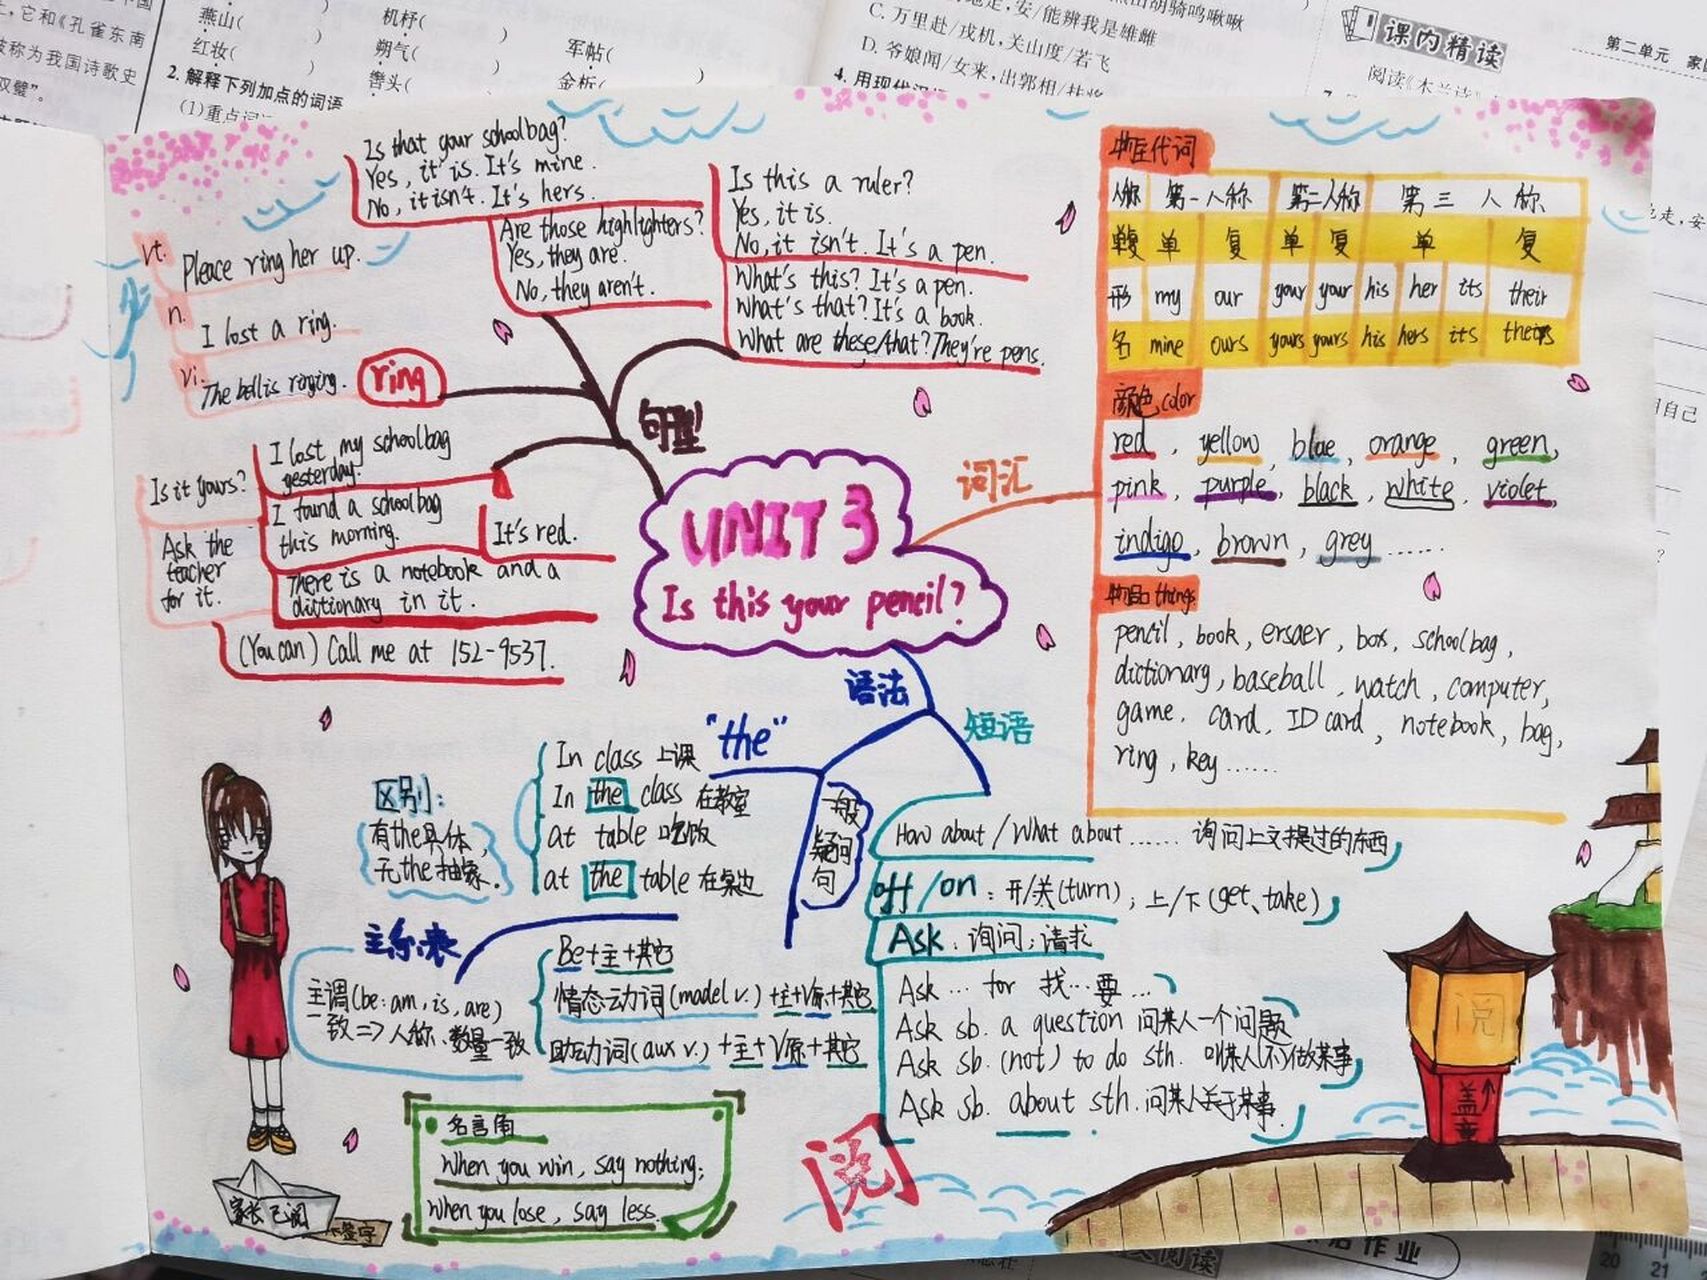 燕山(　　)
机杼(　　)
红妆(　　)
朔气(　　)
军帖(　　)
2. 解释下列加点的词语
辔头(　　)
金柝(
(1)重点词
，它和《孔雀东南
被称为我国诗歌史
双璧”。
C. 万里赴/戎机，关山度/若飞
D. 爷娘闻/女来，出郭相/扶将
地走，安/能辨我是雄雌
山胡骑鸣啾啾
4. 用现代汉
课内精读
第二单元
阅读《木兰诗》
Is that your schoolbag?
Yes, it is. It's mine.
No, it isn't. It's hers.
Are those highlighters?
Yes, they are.
No, they aren't.
Is this a ruler?
Yes, it is.
No, it isn't. It's a pen.
What's this? It's a pen.
What's that? It's a book.
What are these/that? They're pens.
vt.
Pleace ring her up.
n.
I lost a ring.
vi.
The bell is ringing.
ring
句型
I lost my schoolbag
yesterday.
Is it yours?
I found a schoolbag
this morning.
It's red.
Ask the
teacher
for it.
There is a notebook and a
dictionary in it.
(You can) Call me at 152-9537.
UNIT 3
Is this your pencil?
词汇
物主代词
人称 第一人称 第二人称 第三人称
单复 单 复 单 复 单 复
形 my our your your his her its their
名 mine ours yours yours his hers its theirs
颜色 color
red, yellow, blue, orange, green,
pink, purple, black, white, violet,
indigo, brown, grey ……
物品 things
pencil, book, ersaer, box, schoolbag,
dictionary, baseball, watch, computer,
game, card, ID card, notebook, bag,
ring, key ……
语法
短语
"the"
In class 上课
In the class 在教室
at table 吃饭
at the table 在桌边
区别:
有the具体,
无the抽象.
一般
疑问
句
Be+主+其它
情态动词(model v.)+主+V原+其它
助动词(aux v.)+主+V原+其它
主系表
主调(be: am, is, are)
一致=>人称、数量一致
How about / What about …… 询问上文提过的东西
off / on : 开/关(turn); 上/下(get、take)
Ask: 询问; 请求
Ask … for 找…要…
Ask sb. a question 问某人一个问题
Ask sb. (not) to do sth. 叫某人(不)做某事
Ask sb. about sth. 问某人关于某事
名言角
When you win, say nothing;
When you lose, say less.
家长已阅
签字
阅
阅
盖章
作业
20 21